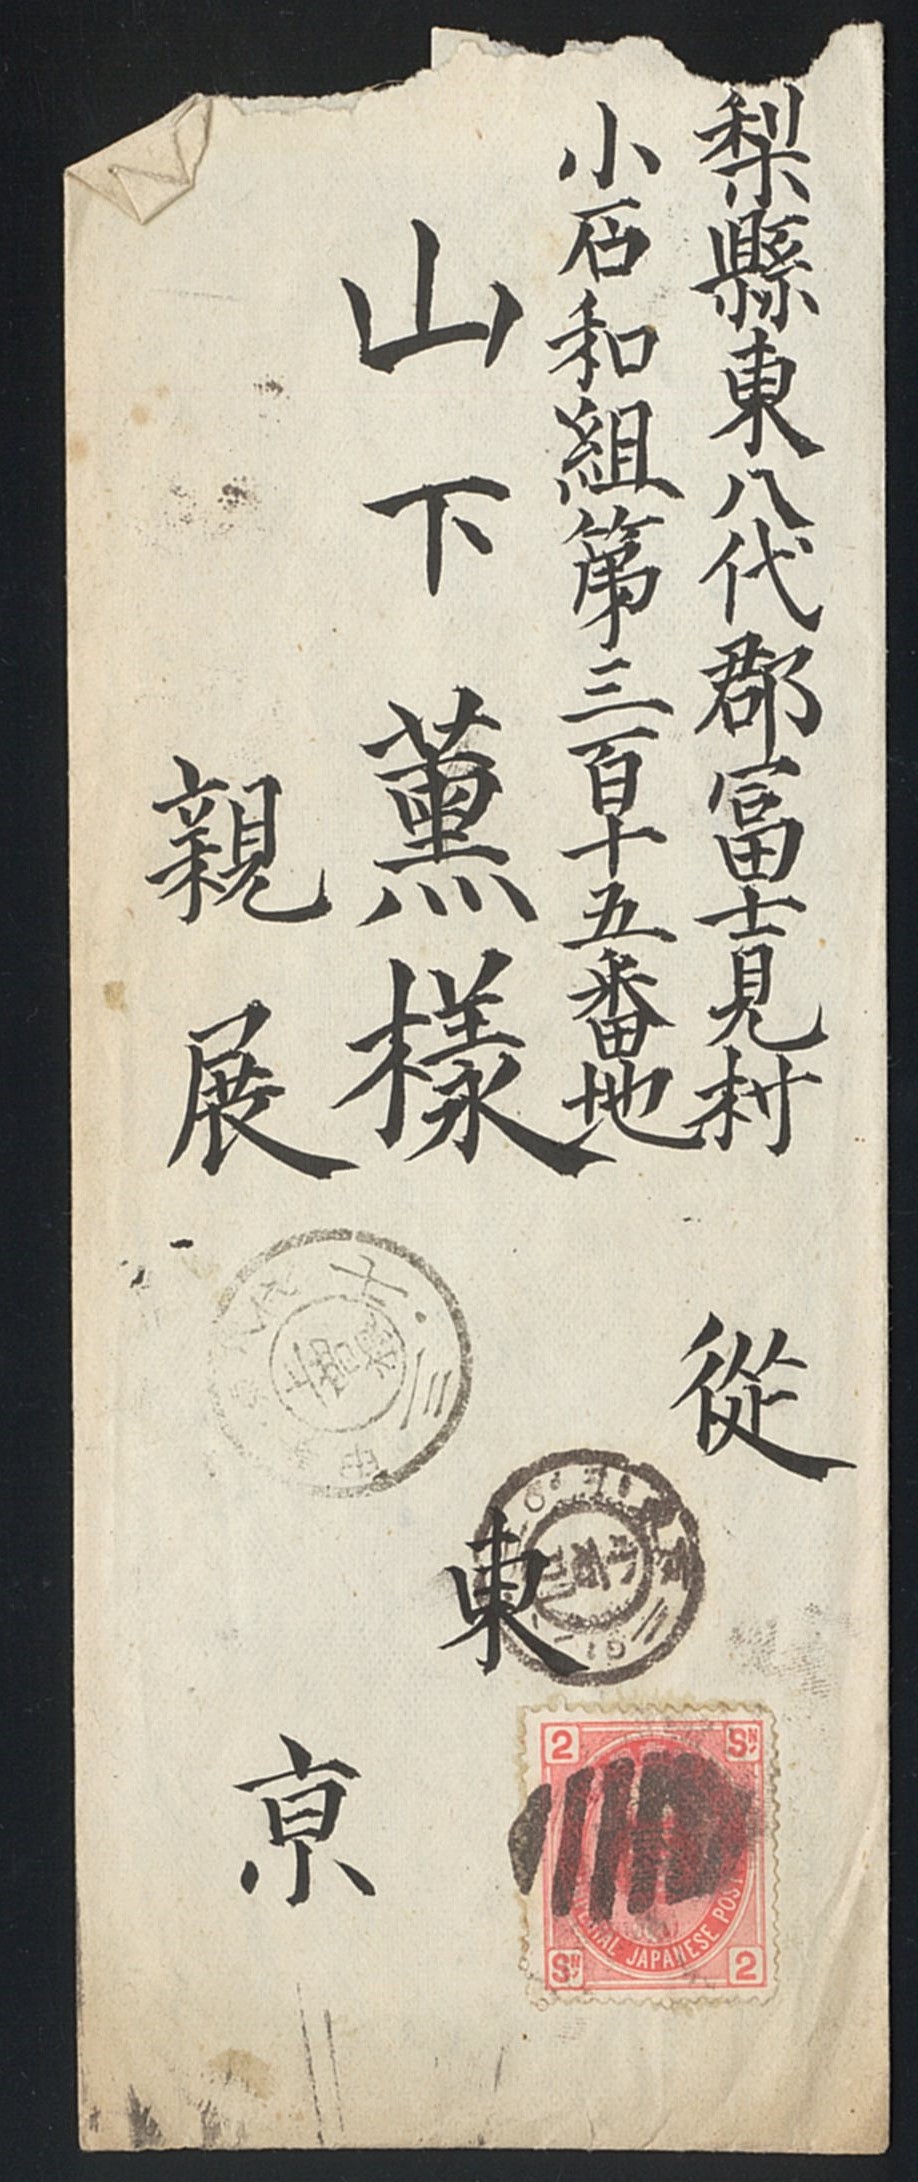 梨縣東八代郡冨士見村
小石和組第三百十五番地
山下薫樣
親展
從
東
京
2 SN
JAPANESE POST
SN 2